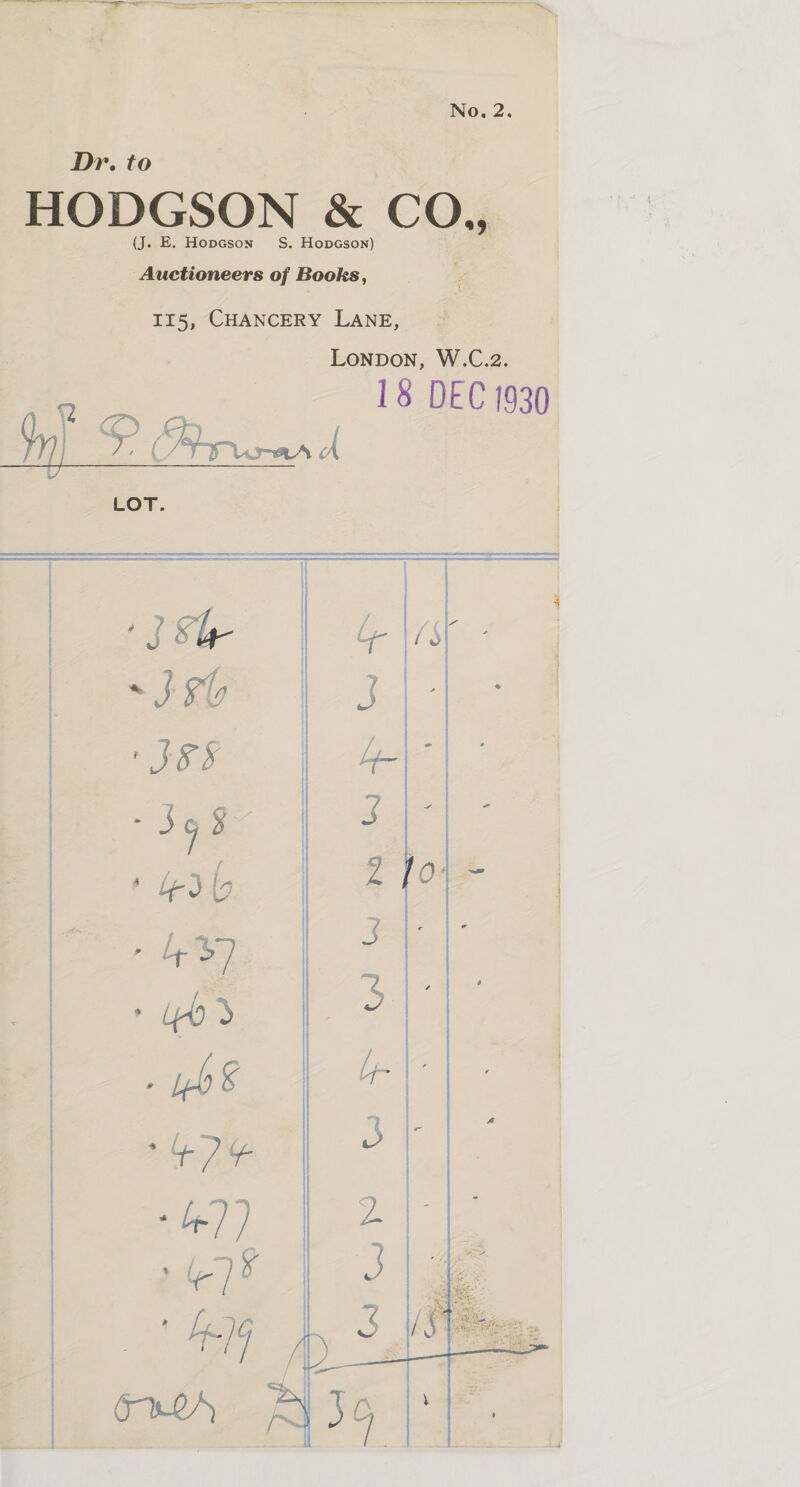 No. 2.
Dr. to
HODGSON & CO.,
(J. E. HODGSON S. HODGSON)
Auctioneers of Books,
115, CHANCERY LANE,
LONDON, W.C.2.
18 DEC 1930
Mr P.
LOT.
384 4 15 -
386 3 - -
388 4 - -
398 3 - -
436 2 10 -
437 3 - -
463 3 - -
468 4 - -
474 3 - -
477 2 - -
478 3 - -
479 3 15 -
over £ 39 - -